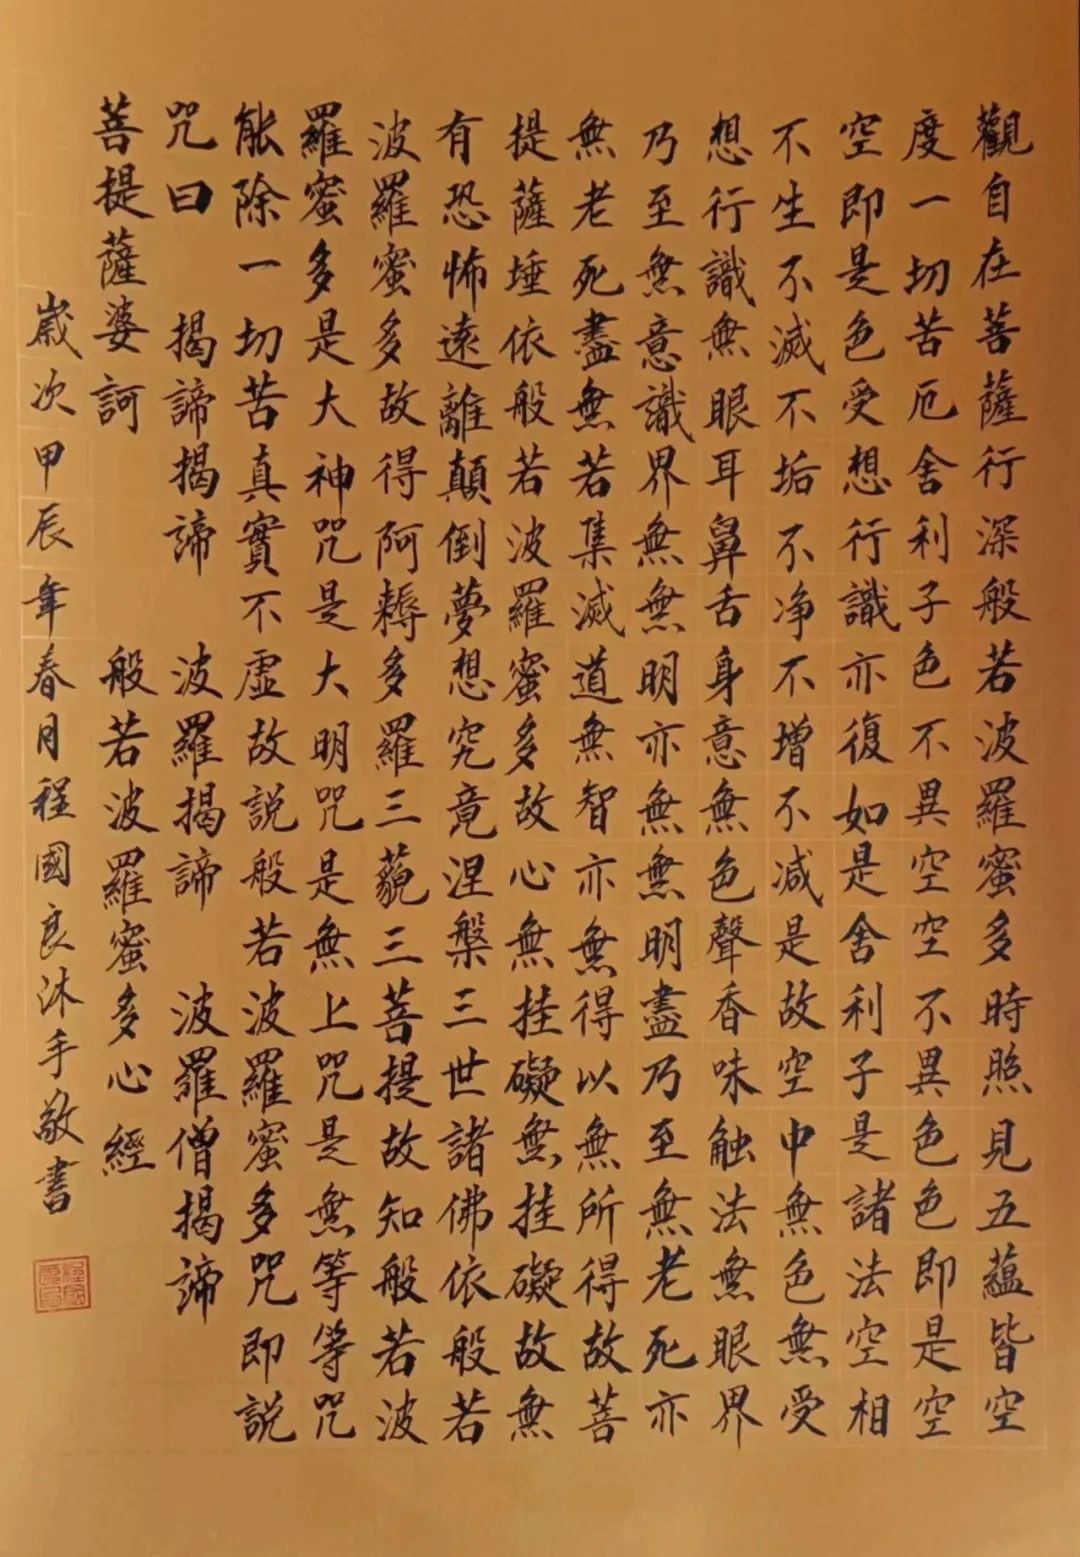 觀自在菩薩行深般若波羅蜜多時照見五蘊皆空
度一切苦厄舍利子色不異空空不異色色即是空
空即是色受想行識亦復如是舍利子是諸法空相
不生不滅不垢不净不增不减是故空中無色無受
想行識無眼耳鼻舌身意無色聲香味触法無眼界
乃至無意識界無無明亦無無明盡乃至無老死亦
無老死盡無若集滅道無智亦無得以無所得故菩
提薩埵依般若波羅蜜多故心無挂礙無挂礙故無
有恐怖遠離顛倒夢想究竟涅槃三世諸佛依般若
波羅蜜多故得阿耨多羅三藐三菩提故知般若波
羅蜜多是大神咒是大明咒是無上咒是無等等咒
能除一切苦真實不虛故説般若波羅蜜多咒即説
咒曰 揭諦揭諦 波羅揭諦 波羅僧揭諦
菩提薩婆訶 般若波羅蜜多心經
歲次甲辰年春月程國良沐手敬書